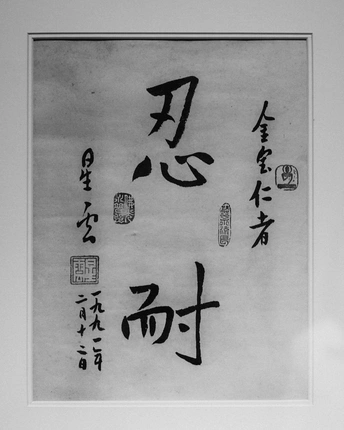 金宝仁者
忍耐
星云
一九九一年
二月十二日